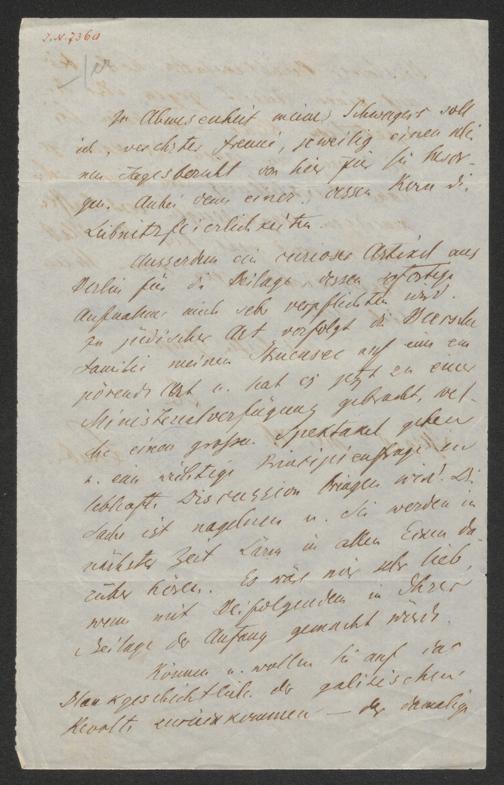 I.N. 7360
In Abwesenheit meines Schwagers soll
ich, verehrter Freund, jeweilig einen klei
nen Tagesbericht von hier für Sie besor-
gen. Anbei denn einer, dessen Kern die
Leibnitzfeierlichkeiten.
Ausserdem ein curioser Artikel aus
Berlin für die Beilage dessen sofortige
Aufnahme mich sehr verpflichten wird.
In jüdischer Art verfolgt die
Familie meinen Struensee auf eine em
pörende Art u. hat es jetzt zu einer
Ministerialverfügung gebracht, wel-
che einen großen Spektakel geben
u. eine wichtige Prinzipienfrage in
lebhafte Discussion bringen wird. Die
Sache ist nagelneu u. Sie werden in
nächster Zeit Lärm in allen Ecken da-
rüber hören. Es wäre mir sehr lieb,
wenn mit Beifolgendem in Ihrer
Beilage der Anfang gemacht würde.
Können u. wollen Sie auf das
der galizischen
Revolte zurückkommen — der damalige